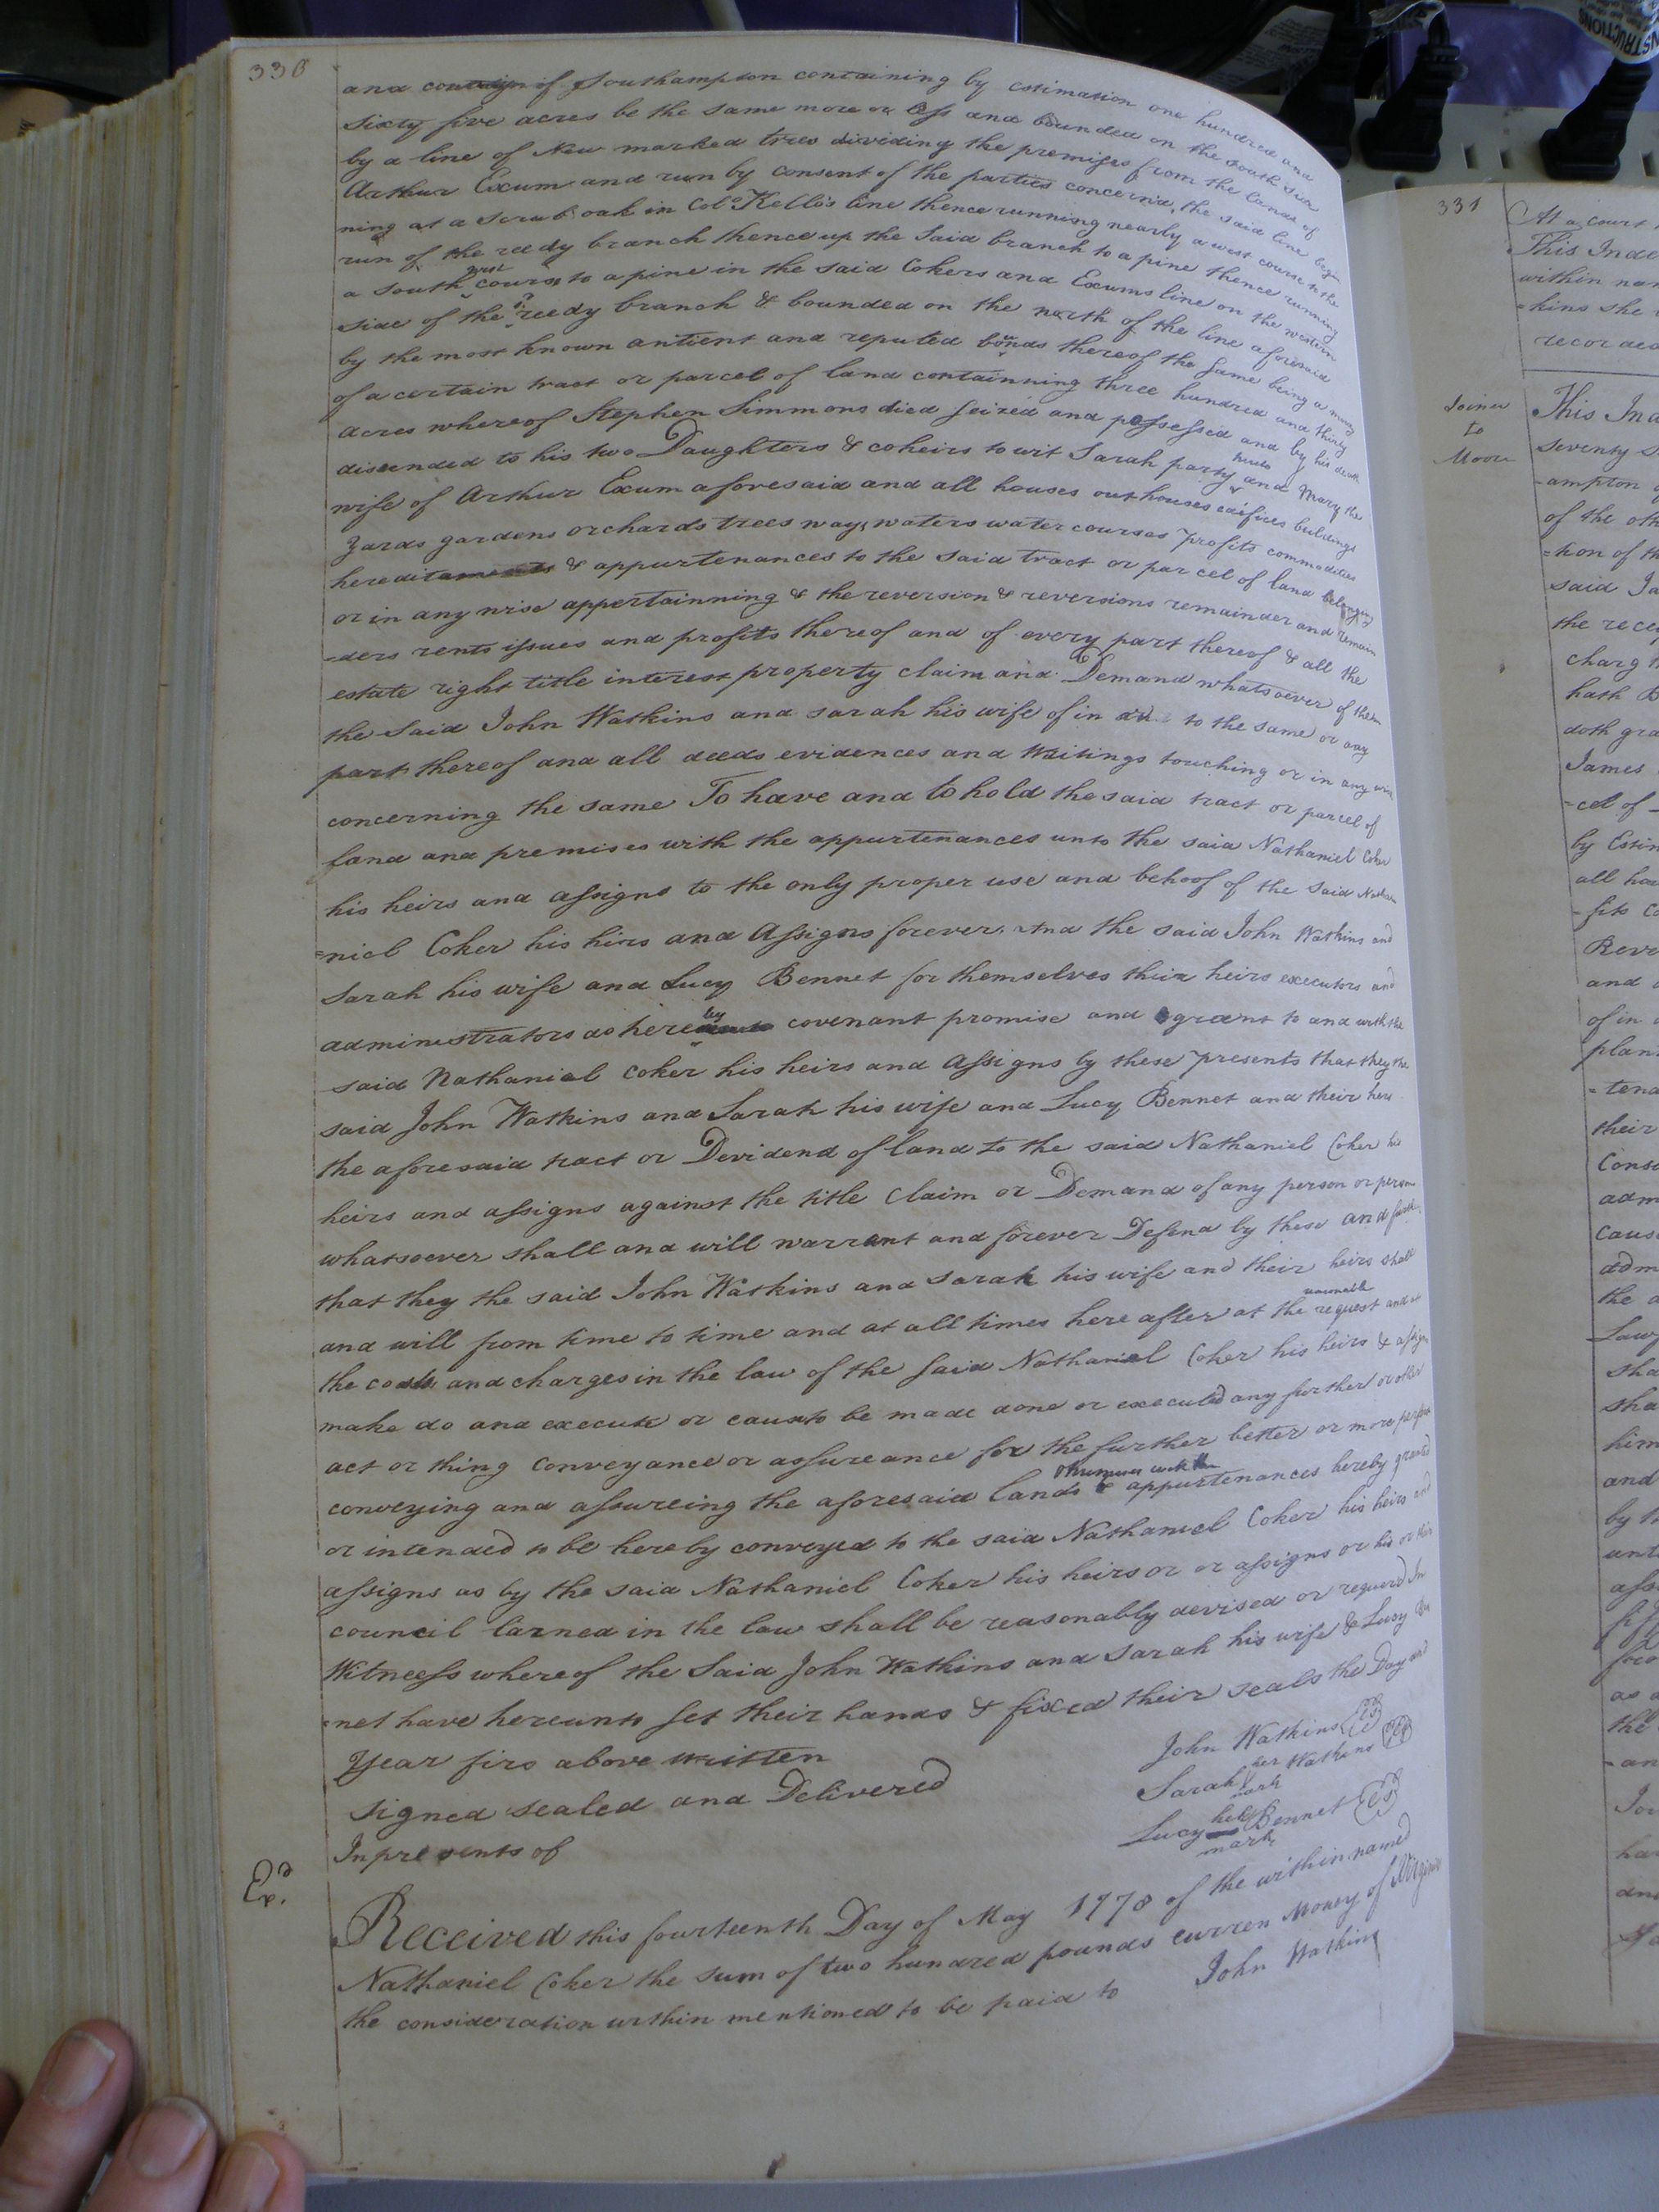 330
and county of Southampton containing by estimation one hundred and
sixty five acres be the same more or less and bounded on the south side
by a line of New marked trees dividing the premises from the lands of
Arthur Exum and run by consent of the parties concernd, the said line begin
ning at a Scrub oak in Colo Kello's line thence running nearly a west course to the
run of the reedy branch thence up the said branch to a pine thence running
a south west course to a pine in the said Cokers and Exums line on the western
side of the sd reedy branch & bounded on the north of the line aforesaid
by the most known antient and reputed bounds thereof the same being a moiety
of a certain tract or parcel of land containning three hundred and thirty
acres whereof Stephen Simmons died seized and possessed and by his death
disended to his two Daughters & coheirs to wit Sarah party hereto and Mary the
wife of Arthur Exum aforesaid and all houses outhouses edifices buildings
yards gardens orchards trees ways waters water courses profits commodities
hereditaments & appurtenances to the said tract or parcel of land belonging
or in any wise appertainning & the reversion & reversions remainder and remain
=ders rents issues and profits thereof and of every part thereof & all the
estate right title interest property claim and Demand whatsoever of them
the said John Watkins and sarah his wife of in and to the same or any
part thereof and all deeds evidences and Writings touching or in any wise
concerning the same To have and to hold the said tract or parcel of
land and premises with the appurtenances unto the said Nathaniel Coker
his heirs and assigns to the only proper use and behoof of the said Nathan
=niel Coker his hirs and Assigns forever. And the said John Watkins and
Sarah his wife and Lucy Bennet for themselves their heirs executors and
administrators do hereby covenant promise and grant to and with the
said Nathaniel Coker his heirs and Assigns by these presents that they the
said John Watkins and Sarah his wife and Lucy Bennet and their heirs
the aforesaid tract or Devidend of land to the said Nathaniel Coker his
heirs and assigns against the title Claim or Demand of any person or persons
whatsoever shall and will warrant and forever Defend by these and further
that they the said John Watkins and Sarah his wife and their heirs shall
and will from time to time and at all times here after at the reasonable request and at
the costs and charges in the law of the said Nathaniel Coker his heirs & assigns
make do and execute or cause to be made done or executed any further or other
act or thing Conveyance or assureance for the further better or more perfect
conveying and assureing the aforesaid Lands & premises with the appurtenances hereby granted
or intended to be hereby conveyed to the said Nathaniel Coker his heirs and
assigns as by the said Nathaniel Coker his heirs or or assigns or his or their
council larned in the law shall be reasonably devised or requered In
Witness whereof the said John Watkins and Sarah his wife & Lucy Ben
=net have hereunto set their hands & fixed their seals the Day and
Year firs above written
Signed sealed and Delivered
In presents of
John Watkins LS
Sarah her mark Watkins LS
Lucy her mark Bennet LS
Exd
Received this fourteenth Day of May 1778 of the within named
Nathaniel Coker the sum of two hundred pounds curren Money of Virginia
the consideration within mentioned to be paid to
John Watkins
331
At a Court
This Inde
within nam
=kins she
recorded
Joiner
to
Moore
This Ind
Seventy S
=ampton
of the oth
=tion of th
said Ja
the rece
charg th
hath B
doth gra
James
=cel of
by Estim
all hou
=fits co
Rever
and
of in
plan
=tena
their
Cons
adm
Caus
adm
the a
Law
sha
sha
him
and
by th
unto
ass
as a
the
=an